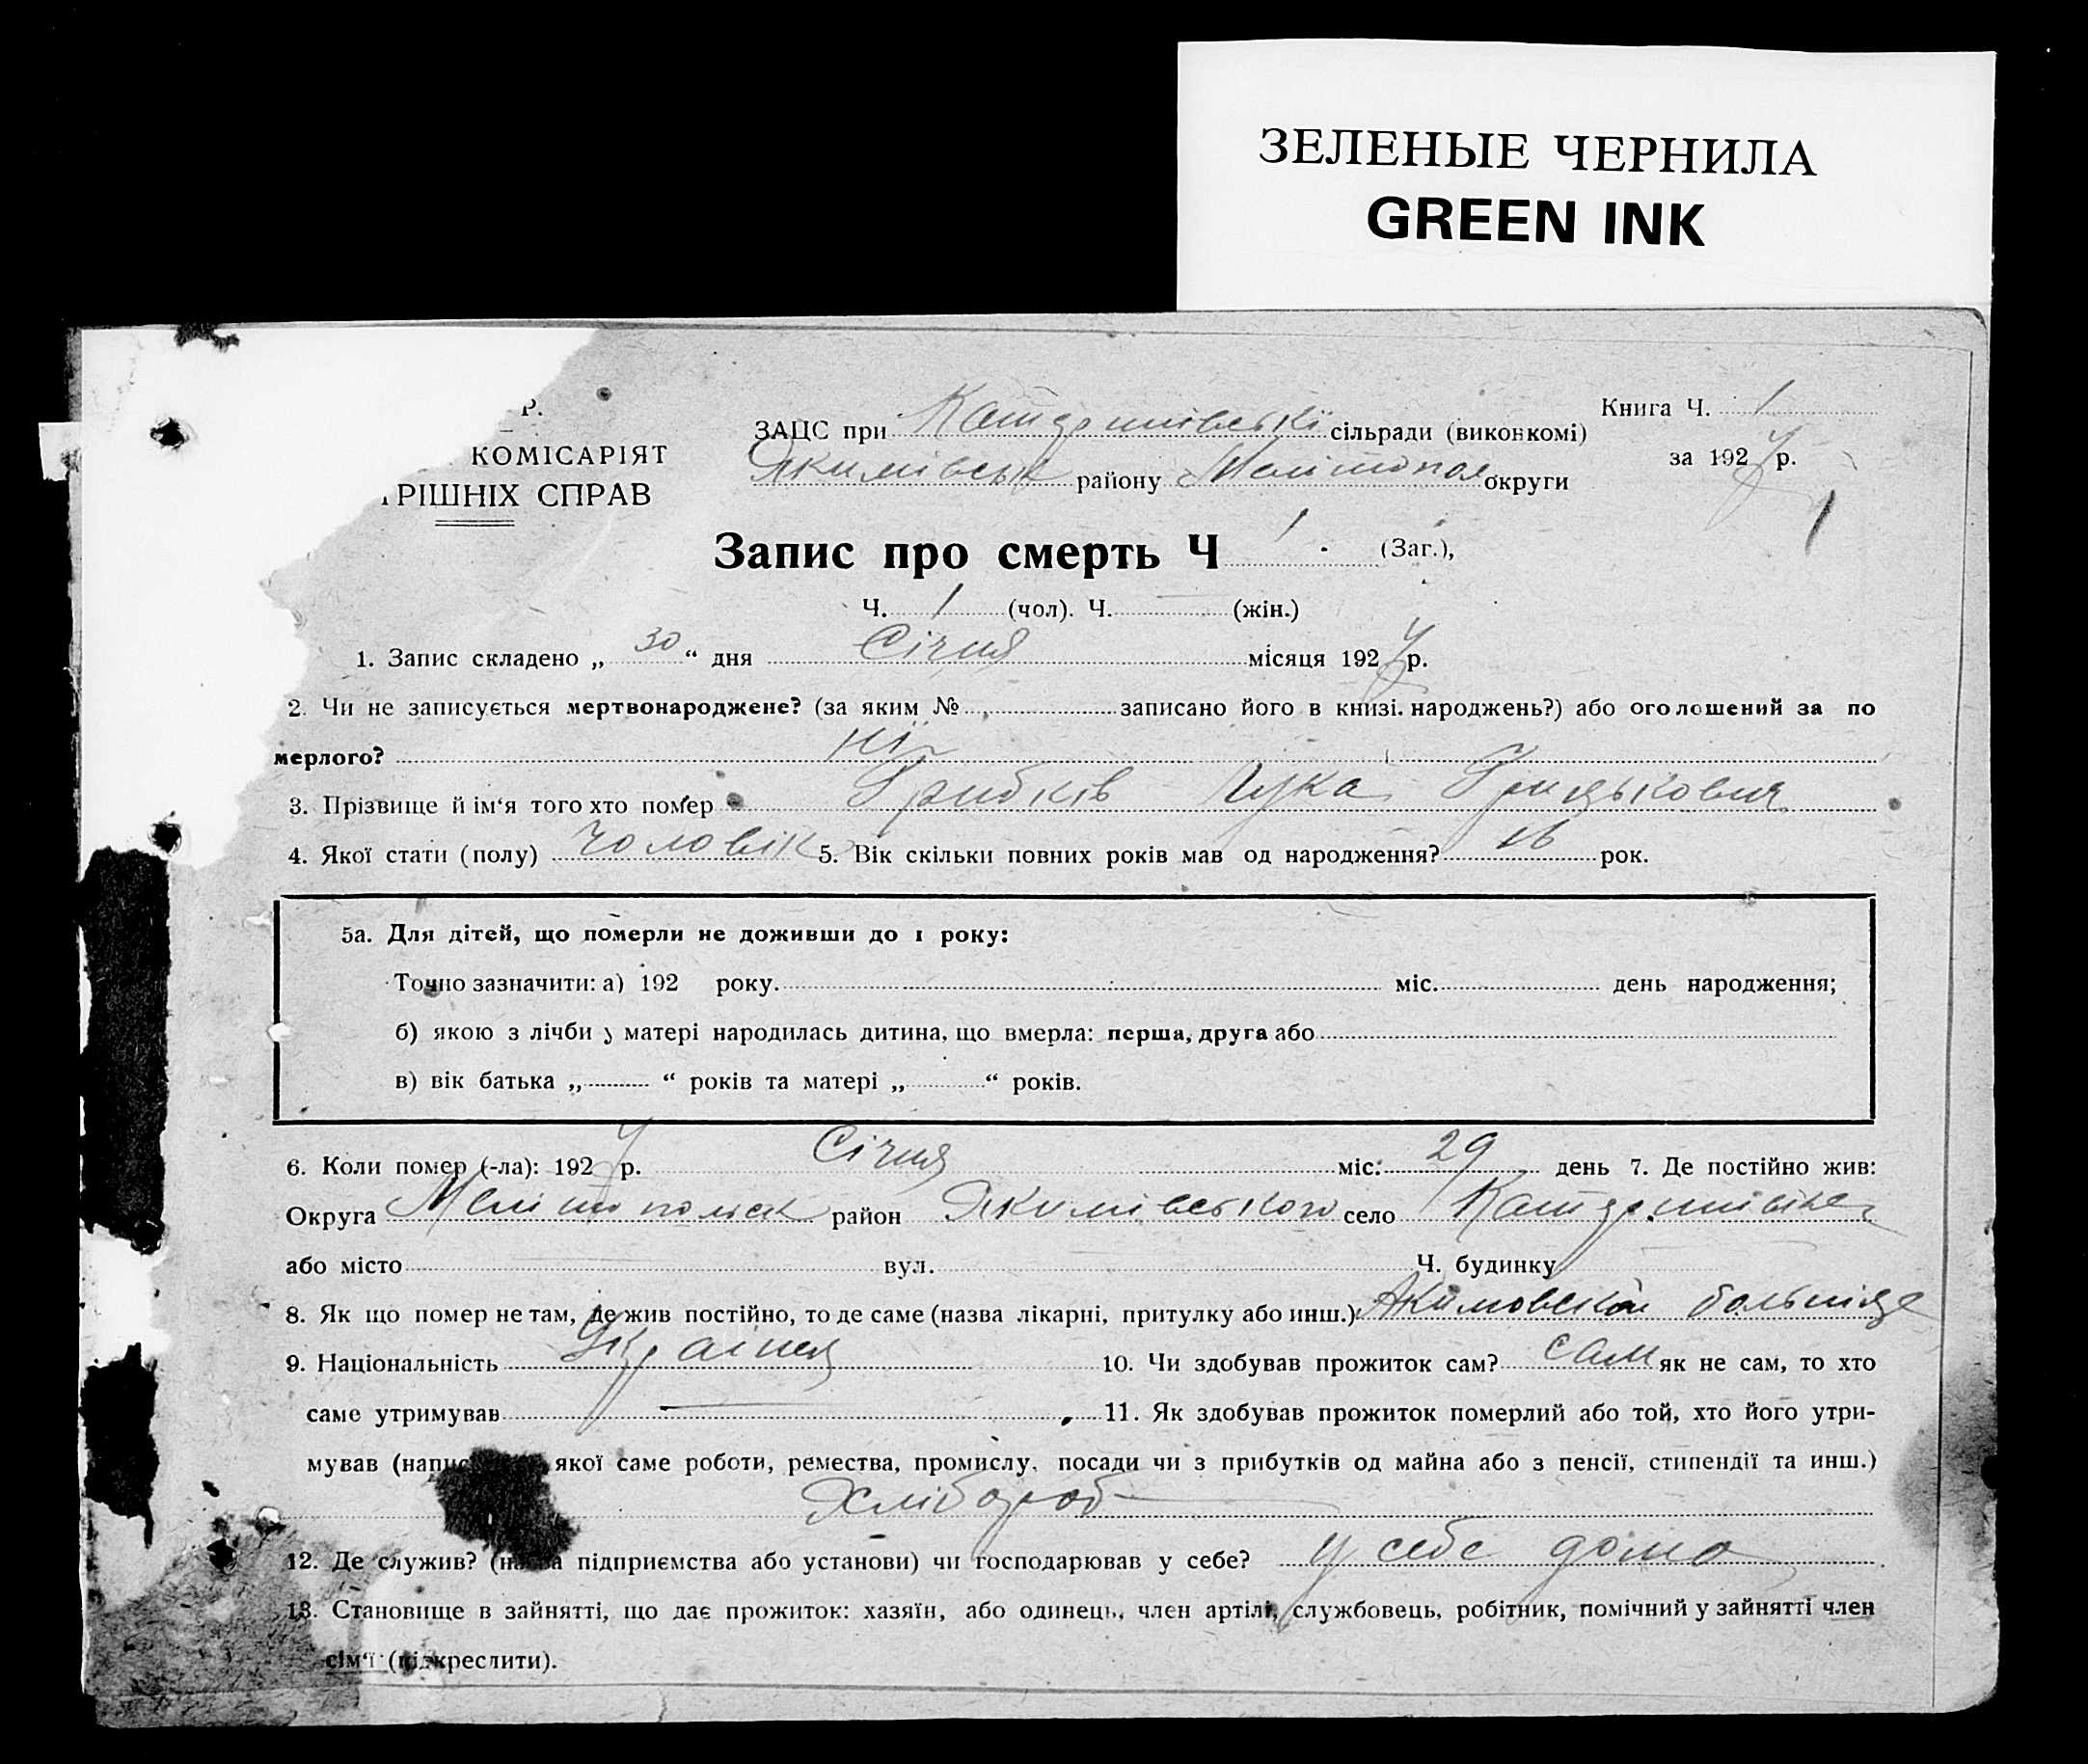 ЗЕЛЕНЫЕ ЧЕРНИЛА
GREEN INK
Р.
КОМІСАРІЯТ
РІШНІХ СПРАВ
ЗАЦС при сільради (виконкомі)
Якимівськ району Мелітопол округи
Книга Ч. 1
за 1927 р.
1
Запис про смерть Ч 1. (Заг.),
Ч. 1 (чол). Ч. — (жін.)
1. Запис складено „ 30 “ дня Січня місяця 1927 р.
2. Чи не записується мертвонароджене? (за яким № записано його в книзі народжень?) або оголошений за по
мерлого? Ні
3. Прізвище й ім‘я того хто помер Грибків Лука Грицькович
4. Якої стати (полу) Чоловік 5. Вік скільки повних років мав од народження? рок.
5а. Для дітей, що померли не доживши до 1 року:
Точно зазначити: а) 192 року. міс. день народження;
б) якою з лічби у матері народилась дитина, що вмерла: перша, друга або
в) вік батька „ “ років та матері „ “ років.
6. Коли помер (-ла): 1927 р. Січня міс. 29 день 7. Де постійно жив:
Округа Мелітопольск район Якимівського село
або місто вул. Ч. будинку
8. Як що помер не там, де жив постійно, то де саме (назва лікарні, притулку або инш.) Акимовской больнице
9. Національність Українец 10. Чи здобував прожиток сам? сам як не сам, то хто
саме утримував — 11. Як здобував прожиток померлий або той, хто його утри-
мував (напис якої саме роботи, ремества, промислу, посади чи з прибутків од майна або з пенсії, стипендії та инш.)
Хлібороб
12. Де служив? (назва підприємства або установи) чи господарював у себе? у себе дома
13. Становище в зайнятті, що дає прожиток: хазяїн, або одинець, член артілі, службовець, робітник, помічний у зайнятті член
сім‘ї (підкреслити).